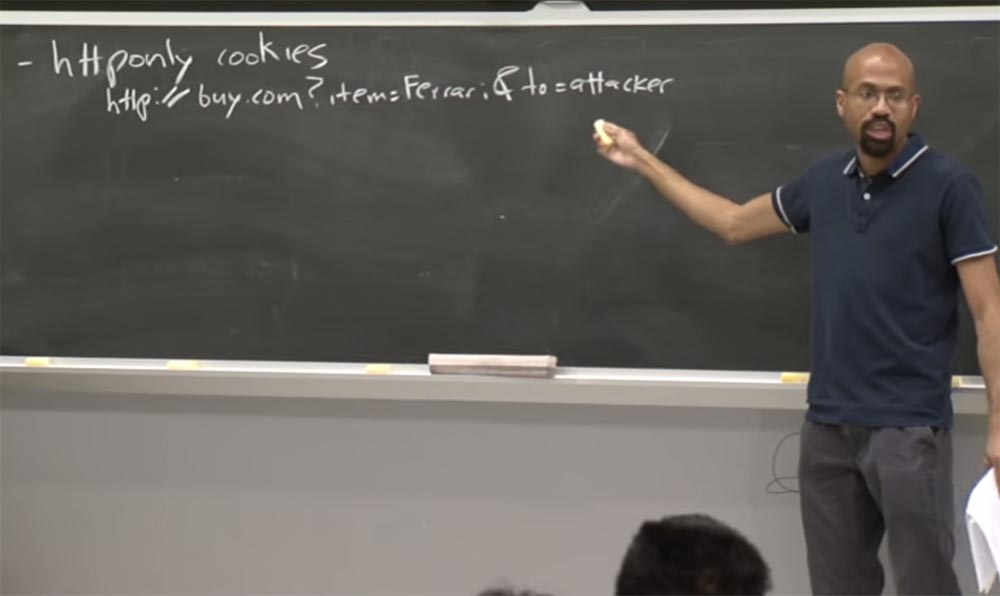 - httponly cookies
http:// buy.com?item=Ferrari&to=attacker